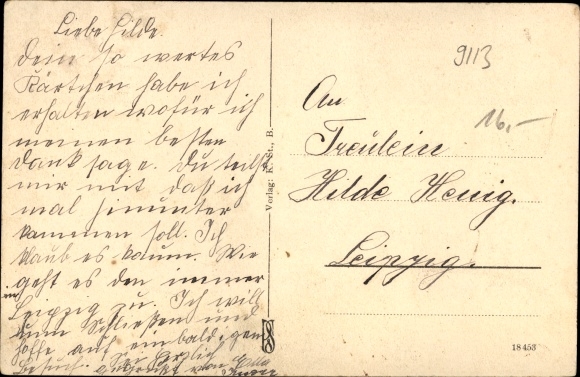 Liebe Hilde.
Dein so wertes
Kärtchen habe ich
erhalten wofür ich
meinen besten
Dank sage. Du teilst
mir mit daß ich
mal hinunter
kommen soll. Ich
glaub es kaum. Wie
geht es den immer
in Leipzig zu. Ich will
nun Schließen und
hoffe auf ein baldigen
Besuch. Sei herzlich
gegrüßt von
Verlag: K. St., B.
9113
16,-
An
Freulein
Hilde Henig.
Leipzig.
18453